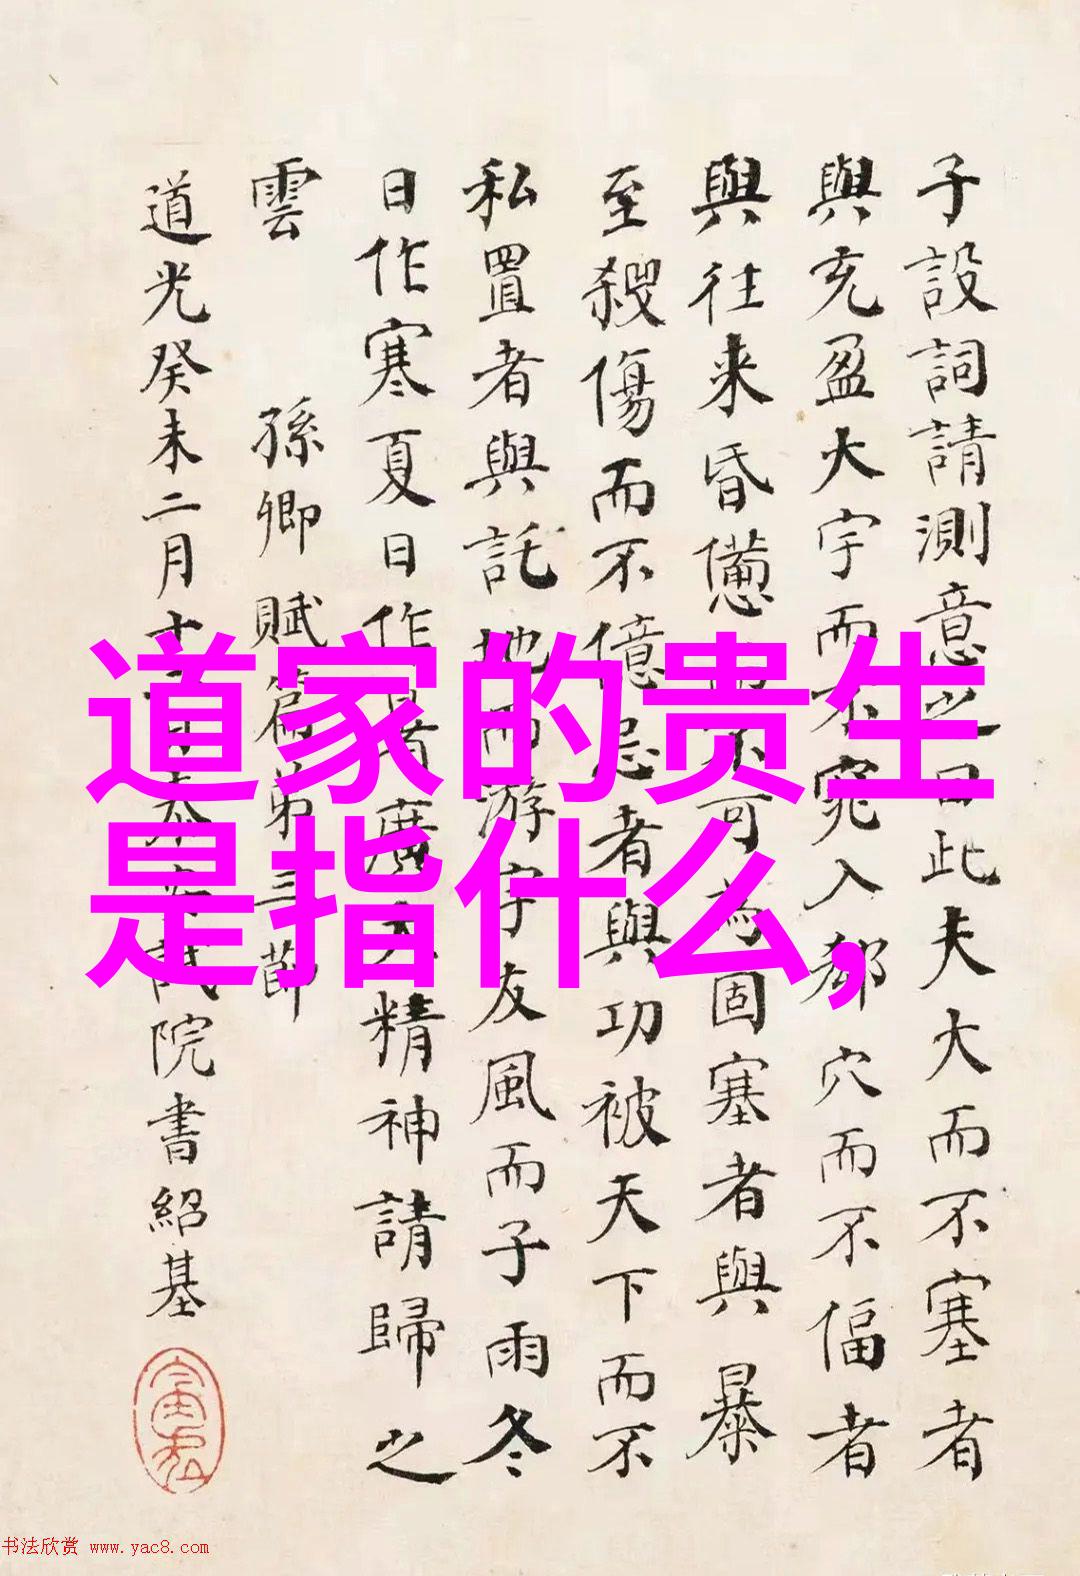 子設詞請測意之曰此夫大而不塞者
與充盈大宇而不窕入郄穴而不偪者
與往来昏憊而不可為固塞者與暴
至殺傷而不億忌者與功被天下而不
私置者與託地而游宇友風而子雨冬
日作寒夏日作暑廣大精神請歸之
雲 孫卿賦篇弟三節
道光癸未二月十日泰安試院書紹基
道家的贵生
是指什么,
书法欣赏 www.yac8.com